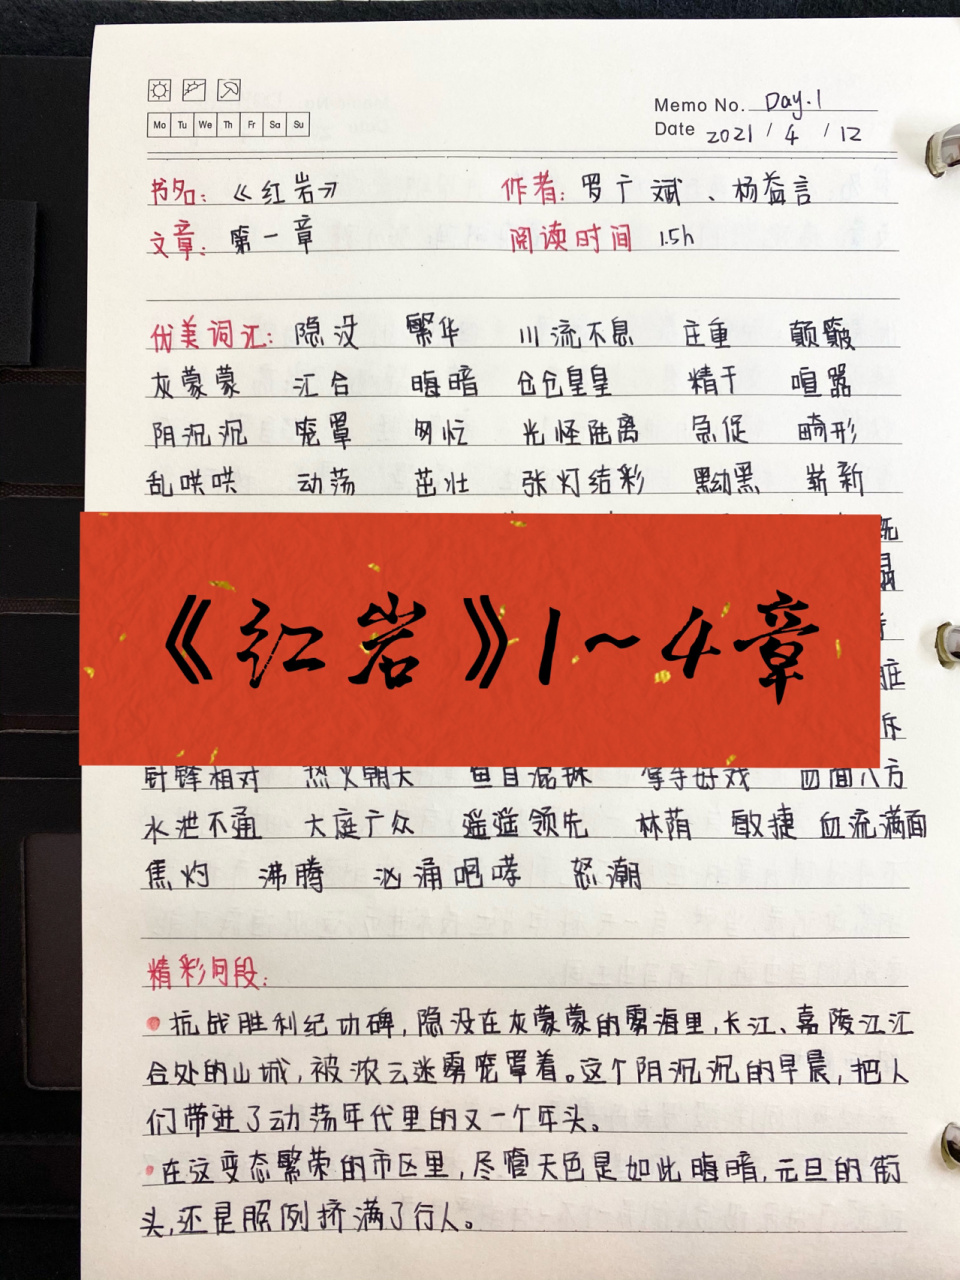 Mo Tu We Th Fr Sa Su
Memo No. Day.1
Date 2021 / 4 / 12
书名：《红岩》 作者：罗广斌、杨益言
文章：第一章 阅读时间 1.5h
优美词汇：隐没 繁华 川流不息 庄重 颠簸
灰蒙蒙 汇合 晦暗 仓仓皇皇 精干 喧嚣
阴沉沉 笼罩 匆忙 光怪陆离 急促 畸形
乱哄哄 动荡 茁壮 张灯结彩 黝黑 崭新
《红岩》1~4章
针锋相对 热火朝天 鱼目混珠 拿手好戏 四面八方
水泄不通 大庭广众 遥遥领先 林荫 敏捷 血流满面
焦灼 沸腾 汹涌咆哮 怒潮
精彩句段：
抗战胜利纪功碑，隐没在灰蒙蒙的雾海里，长江、嘉陵江汇
合处的山城，被浓云迷雾笼罩着。这个阴沉沉的早晨，把人
们带进了动荡年代里的又一个年头。
在这变态繁荣的市区里，尽管天色是如此晦暗，元旦的街
头，还是照例挤满了行人。